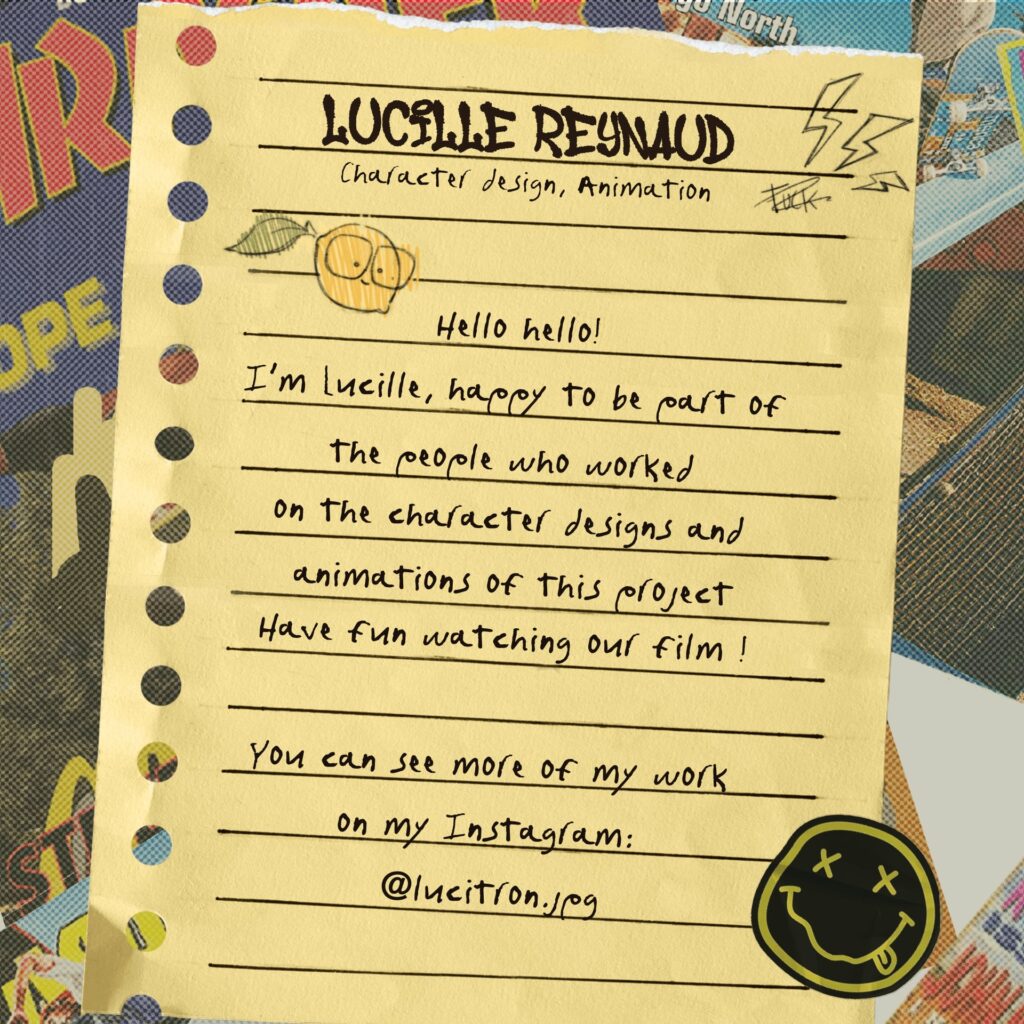 go North
LUCILLE REYNAUD
Character design, Animation
OPE
Hello hello!
I'm Lucille, happy to be part of
the people who worked
on the character designs and
animations of this project
Have fun watching our film !
You can see more of my work
on my Instagram:
@lucitron.jpg